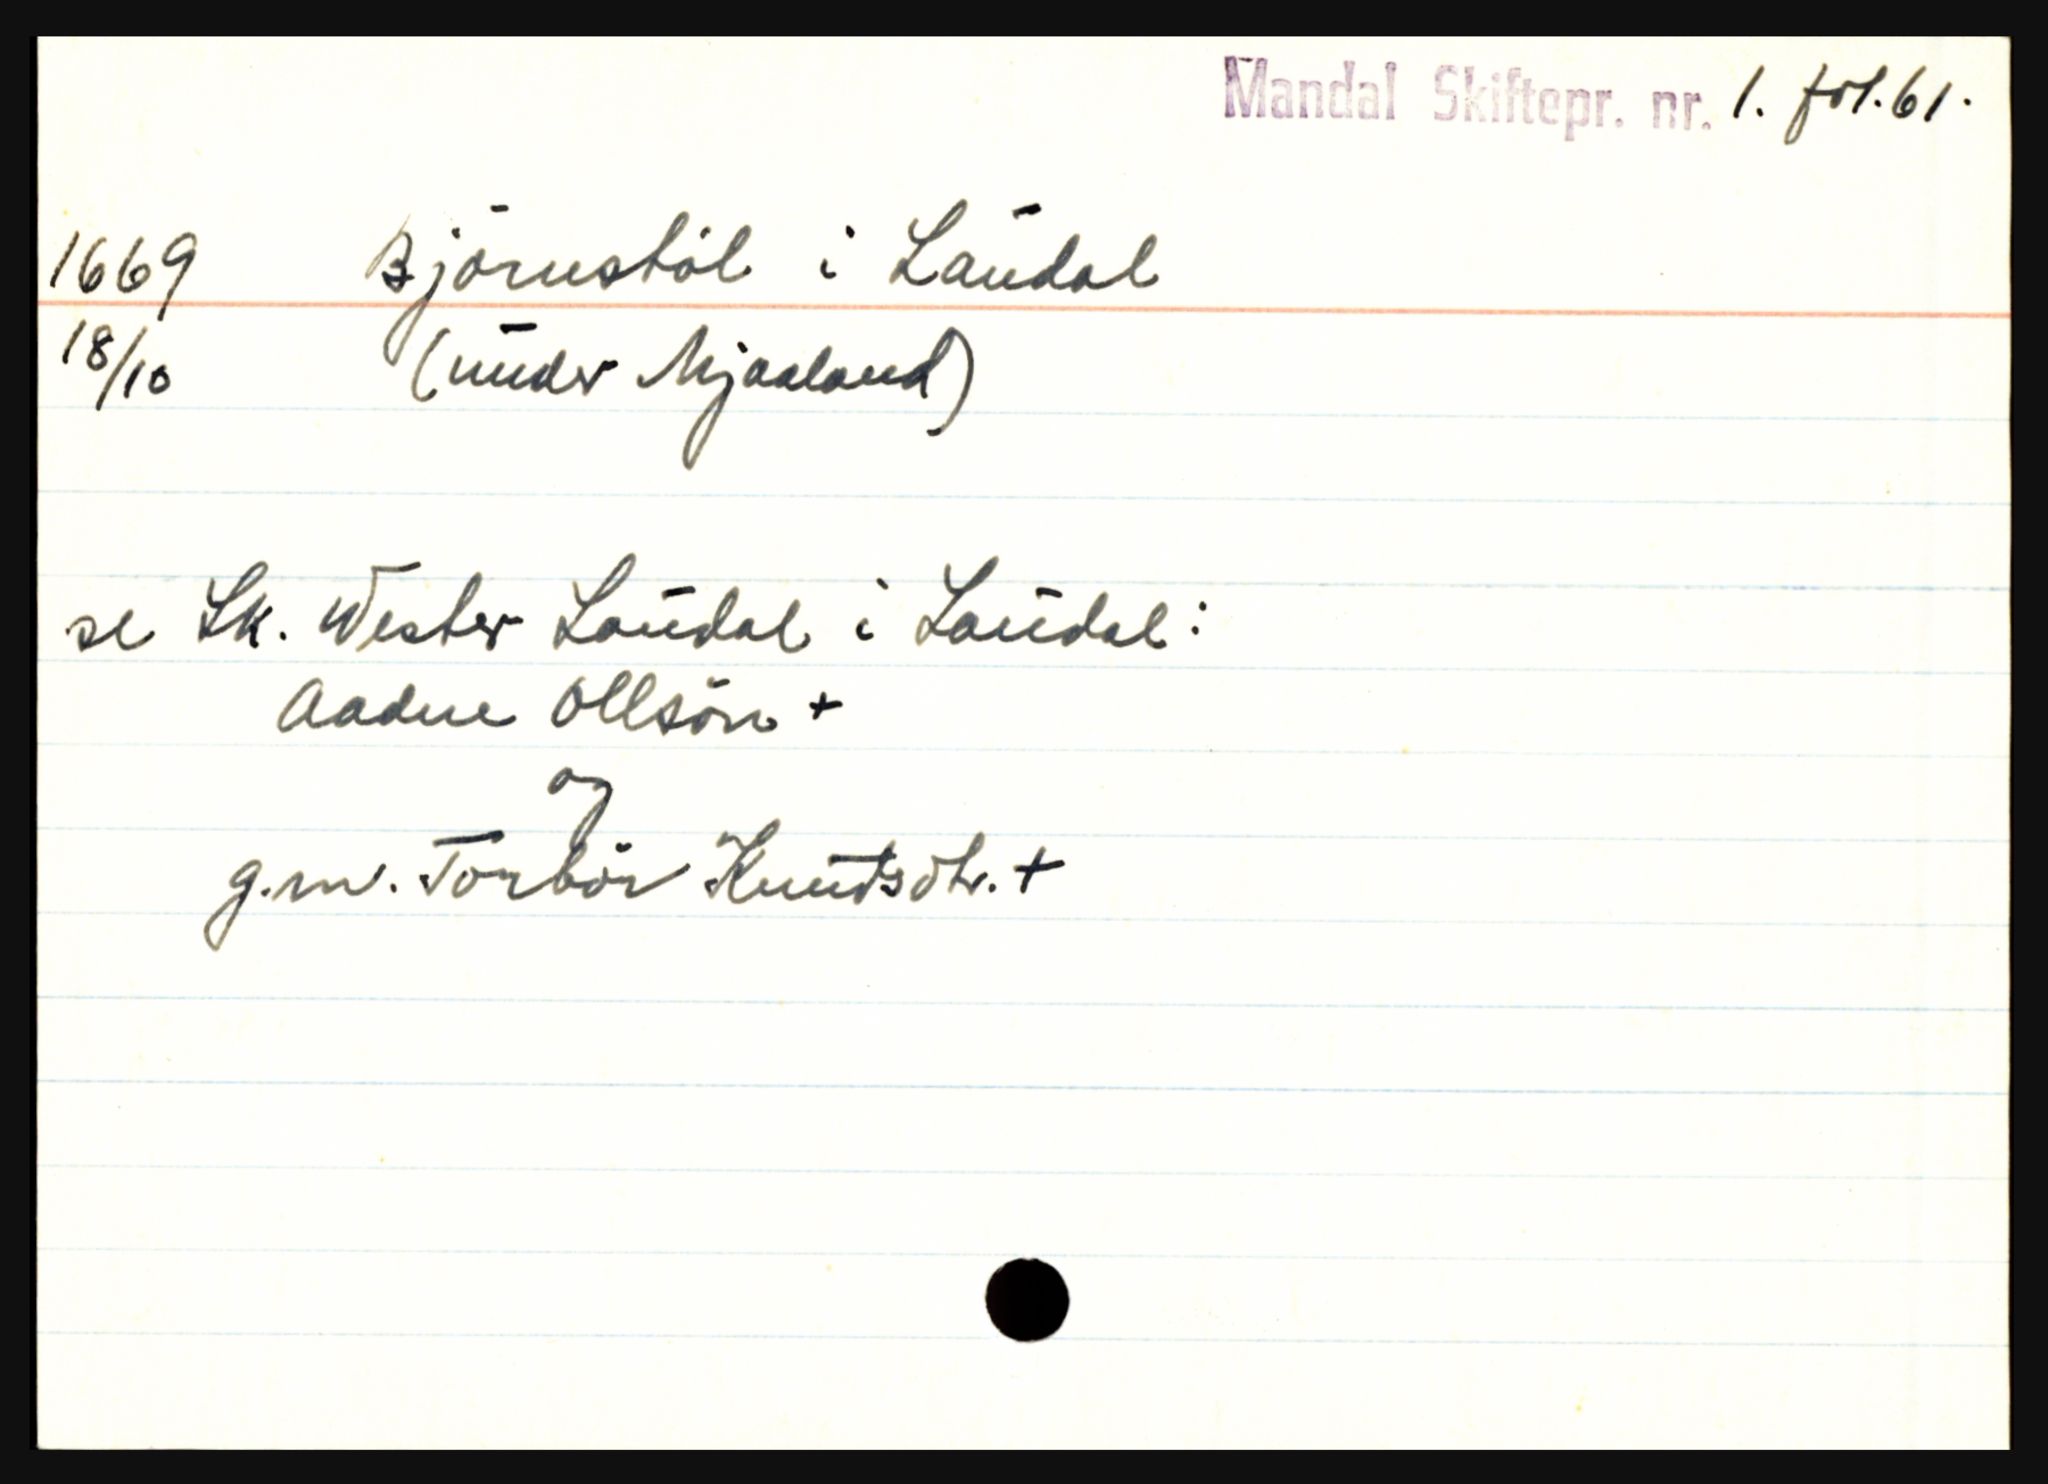 Mandal Skiftepr. nr. 1. fol. 61.
1669 Björnstöl i Laudal
18/10 (under Mjaaland)
se Sk. Wester Laudal i Laudal:
Aadne Ollsön +
og
g.m. Torbör Knutsdtr. +